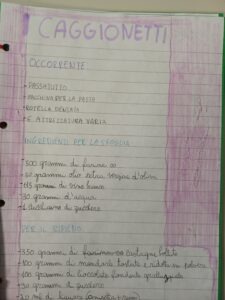 I CAGGIONETTI
OCCORRENTE:
- PASSATUTTO
- MACCHINA PER LA PASTA
- ROTELLA DENTATA
- E ATTREZZATURA VARIA
INGREDIENTI PER LA SFOGLIA
- 500 grammi di farina 00
- grammi olio extra vergine d'oliva
- 115 grammi di vino bianco
- 30 grammi d'acqua
- 1 di zucchero
PER IL RIPIENO
- 350 grammi di castagne bollite
- 100 grammi di mandorle tostate e ridotte in polvere
- 100 grammi di cioccolato fondente grattuggiato
- 30 grammi di zucchero
- 20 ml di liquore